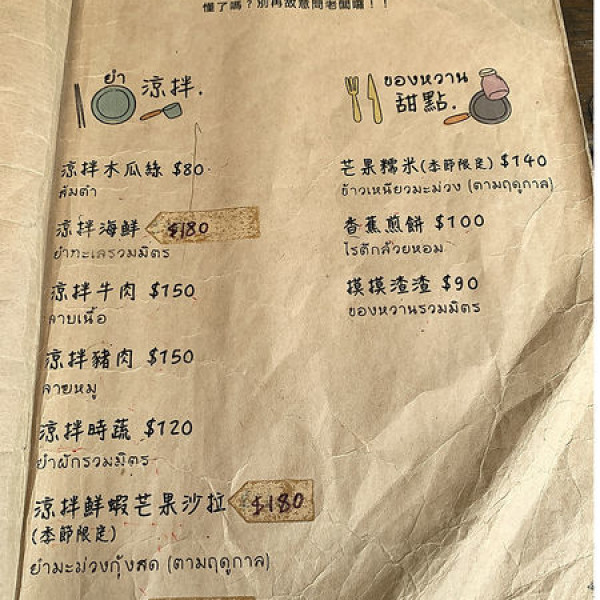 懂了嗎？別再故意問老闆囉！！
ยำ 涼拌.
涼拌木瓜絲 $80
ส้มตำ
涼拌海鮮 $180
ยำทะเลรวมมิตร
涼拌牛肉 $150
ลาบเนื้อ
涼拌豬肉 $150
ลาบหมู
涼拌時蔬 $120
ยำผักรวมมิตร
涼拌鮮蝦芒果沙拉 $180
(季節限定)
ยำมะม่วงกุ้งสด (ตามฤดูกาล)
ของหวาน
甜點.
芒果糯米(季節限定) $140
ข้าวเหนียวมะม่วง (ตามฤดูกาล)
香蕉煎餅 $100
โรตีกล้วยหอม
摸摸渣渣 $90
ของหวานรวมมิตร